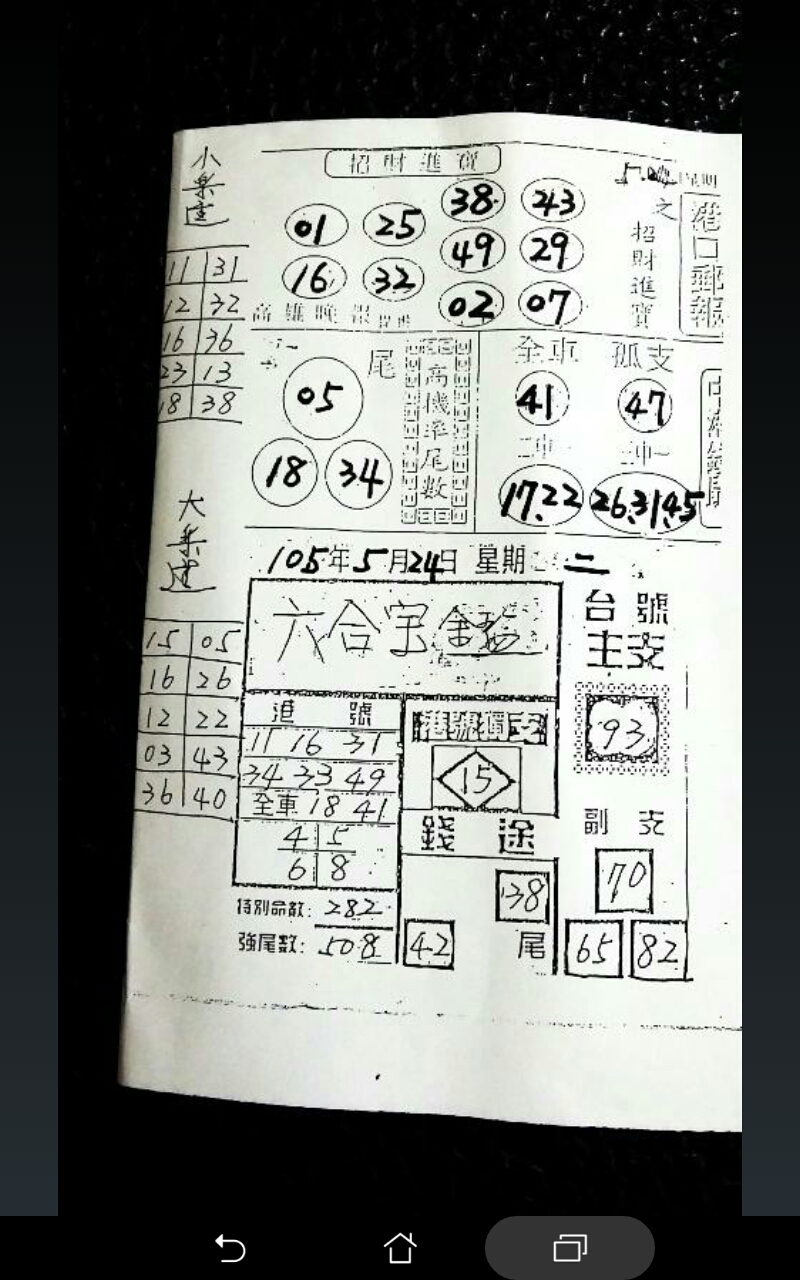 小樂透
11 31
12 32
16 36
23 13
18 38
招財進寶
38 43
01 25
49 29
16 32
02 07
之招財進寶
港口郵報
高雄晚報
尾
05
18 34
高機率尾數
全車 孤支
41 47
二中一 三中一
17.22 26.31.45
大樂透
15 05
16 26
12 22
03 43
36 40
105年5月24日 星期二
六合宝
港號
11 16 31
34 33 49
全車 18 41
4 5
6 8
特別命數: 282
強尾數: 508
港號獨支
15
錢途
38
42 尾
台號
主支
93
副支
70
65 82